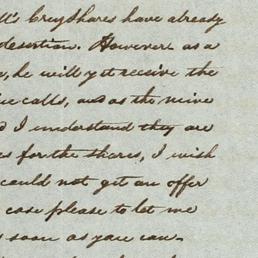 Greyshares have already
desertion. However as a
, he will yet receive the
calls, and as the
I understand they are
for the shares, I wish
could not get an offer
case please to let me
soon as you can.